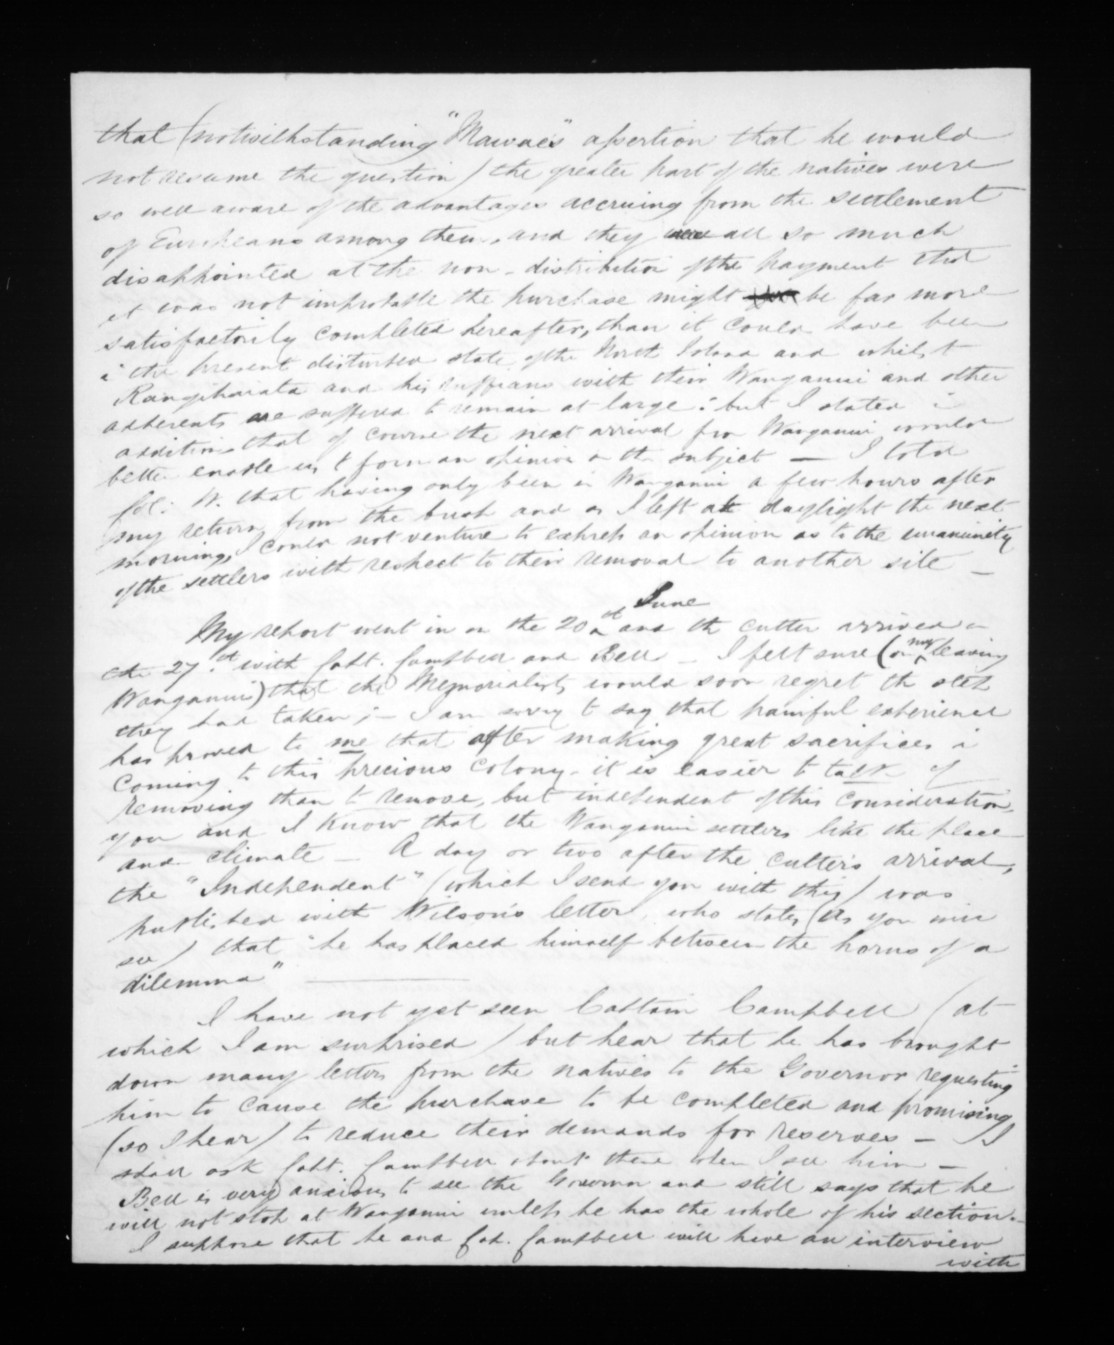 that (notwithstanding "Mawae's" assertion that he would
not resume the question) the greater part of the natives were
so well aware of the advantages accruing from the settlement
of Europeans among them, and they were all so much
disappointed at the non-distribution of the payment that
it was not improbable the purchase might be far more
satisfactorily completed hereafter, than it could have been
in the present disturbed state of the North Island and whilst
Rangihaiata and his ruffians with their Wanganui and other
adherents are suffered to remain at large: but I stated in
addition that of course the next arrival from Wanganui would
better enable us to form an opinion on the subject — I told
Col: W. that having only been in Wanganui a few hours after
my return from the bush and as I left at daylight the next
morning, I could not venture to express an opinion as to the unanimity
of the settlers with respect to their removal to another site —
My report went in on the 20th June and the cutter arrived on
the 27th with Capt. Campbell and Bell — I felt sure (on my leaving
Wanganui) that the Memorialists would soon regret the step
they had taken; — I am sorry to say that painful experience
has proved to me that after making great sacrifices in
coming to this precious colony - it is easier to talk of
removing than to remove, but independent of this consideration,
you and I know that the Wanganui settlers like the place
and climate — A day or two after the cutter's arrival,
the "Independent" (which I send you with this) was
published with Wilson's letter, who states (as you will
see) that "he has placed himself between the horns of a
dilemma" —
I have not yet seen Captain Campbell (at
which I am surprised) but hear that he has brought
down many letters from the natives to the Governor requesting
him to cause the purchase to be completed and promising
(so I hear) to reduce their demands for reserves — I
shall ask Capt. Campbell about these when I see him —
Bell is very anxious to see the Governor and still says that he
will not stop at Wanganui unless he has the whole of his section. —
I suppose that he and Capt. Campbell will have an interview
with